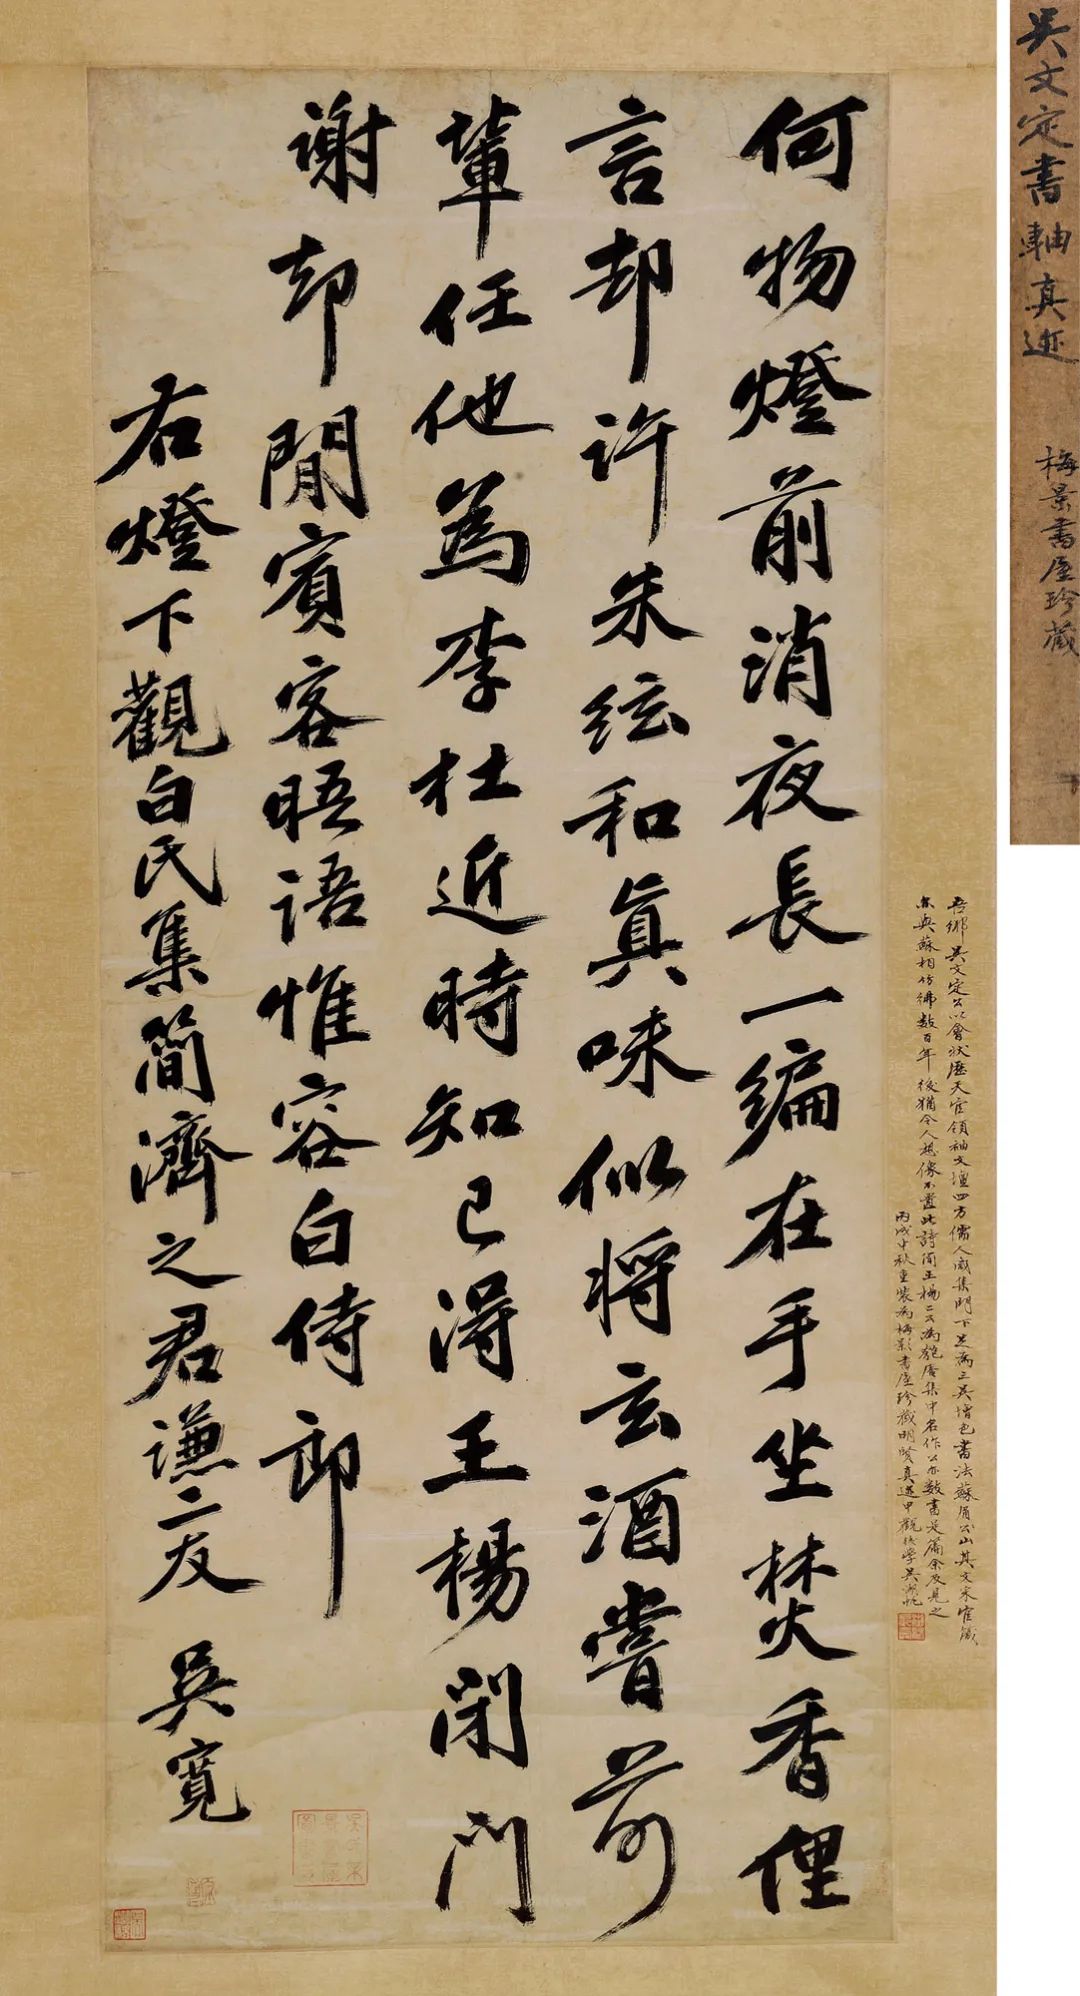 吴文定書軸真迹
梅景書屋珍藏
何物燈前消夜長一編在手坐焚香俚
言却許朱絃和真味似將玄酒嘗前
輩任他為李杜近時知己得王楊閉門
謝却閒賓客晤語惟容白侍郎
右燈下觀白氏集簡濟之君謙二友 吳寬
吾鄉吳文定公以會狀歷天官領袖文壇四方儒人咸集門下足為三吳增色書法蘇眉公山其文采官
亦與蘇相彷彿數百年後猶令人想像不置此詩簡王楊二公為匏庵集中名作公亦數書是篇余及見之
丙戌中秋重裝為梅影書屋珍藏明賢真迹甲觀後學吳湖帆